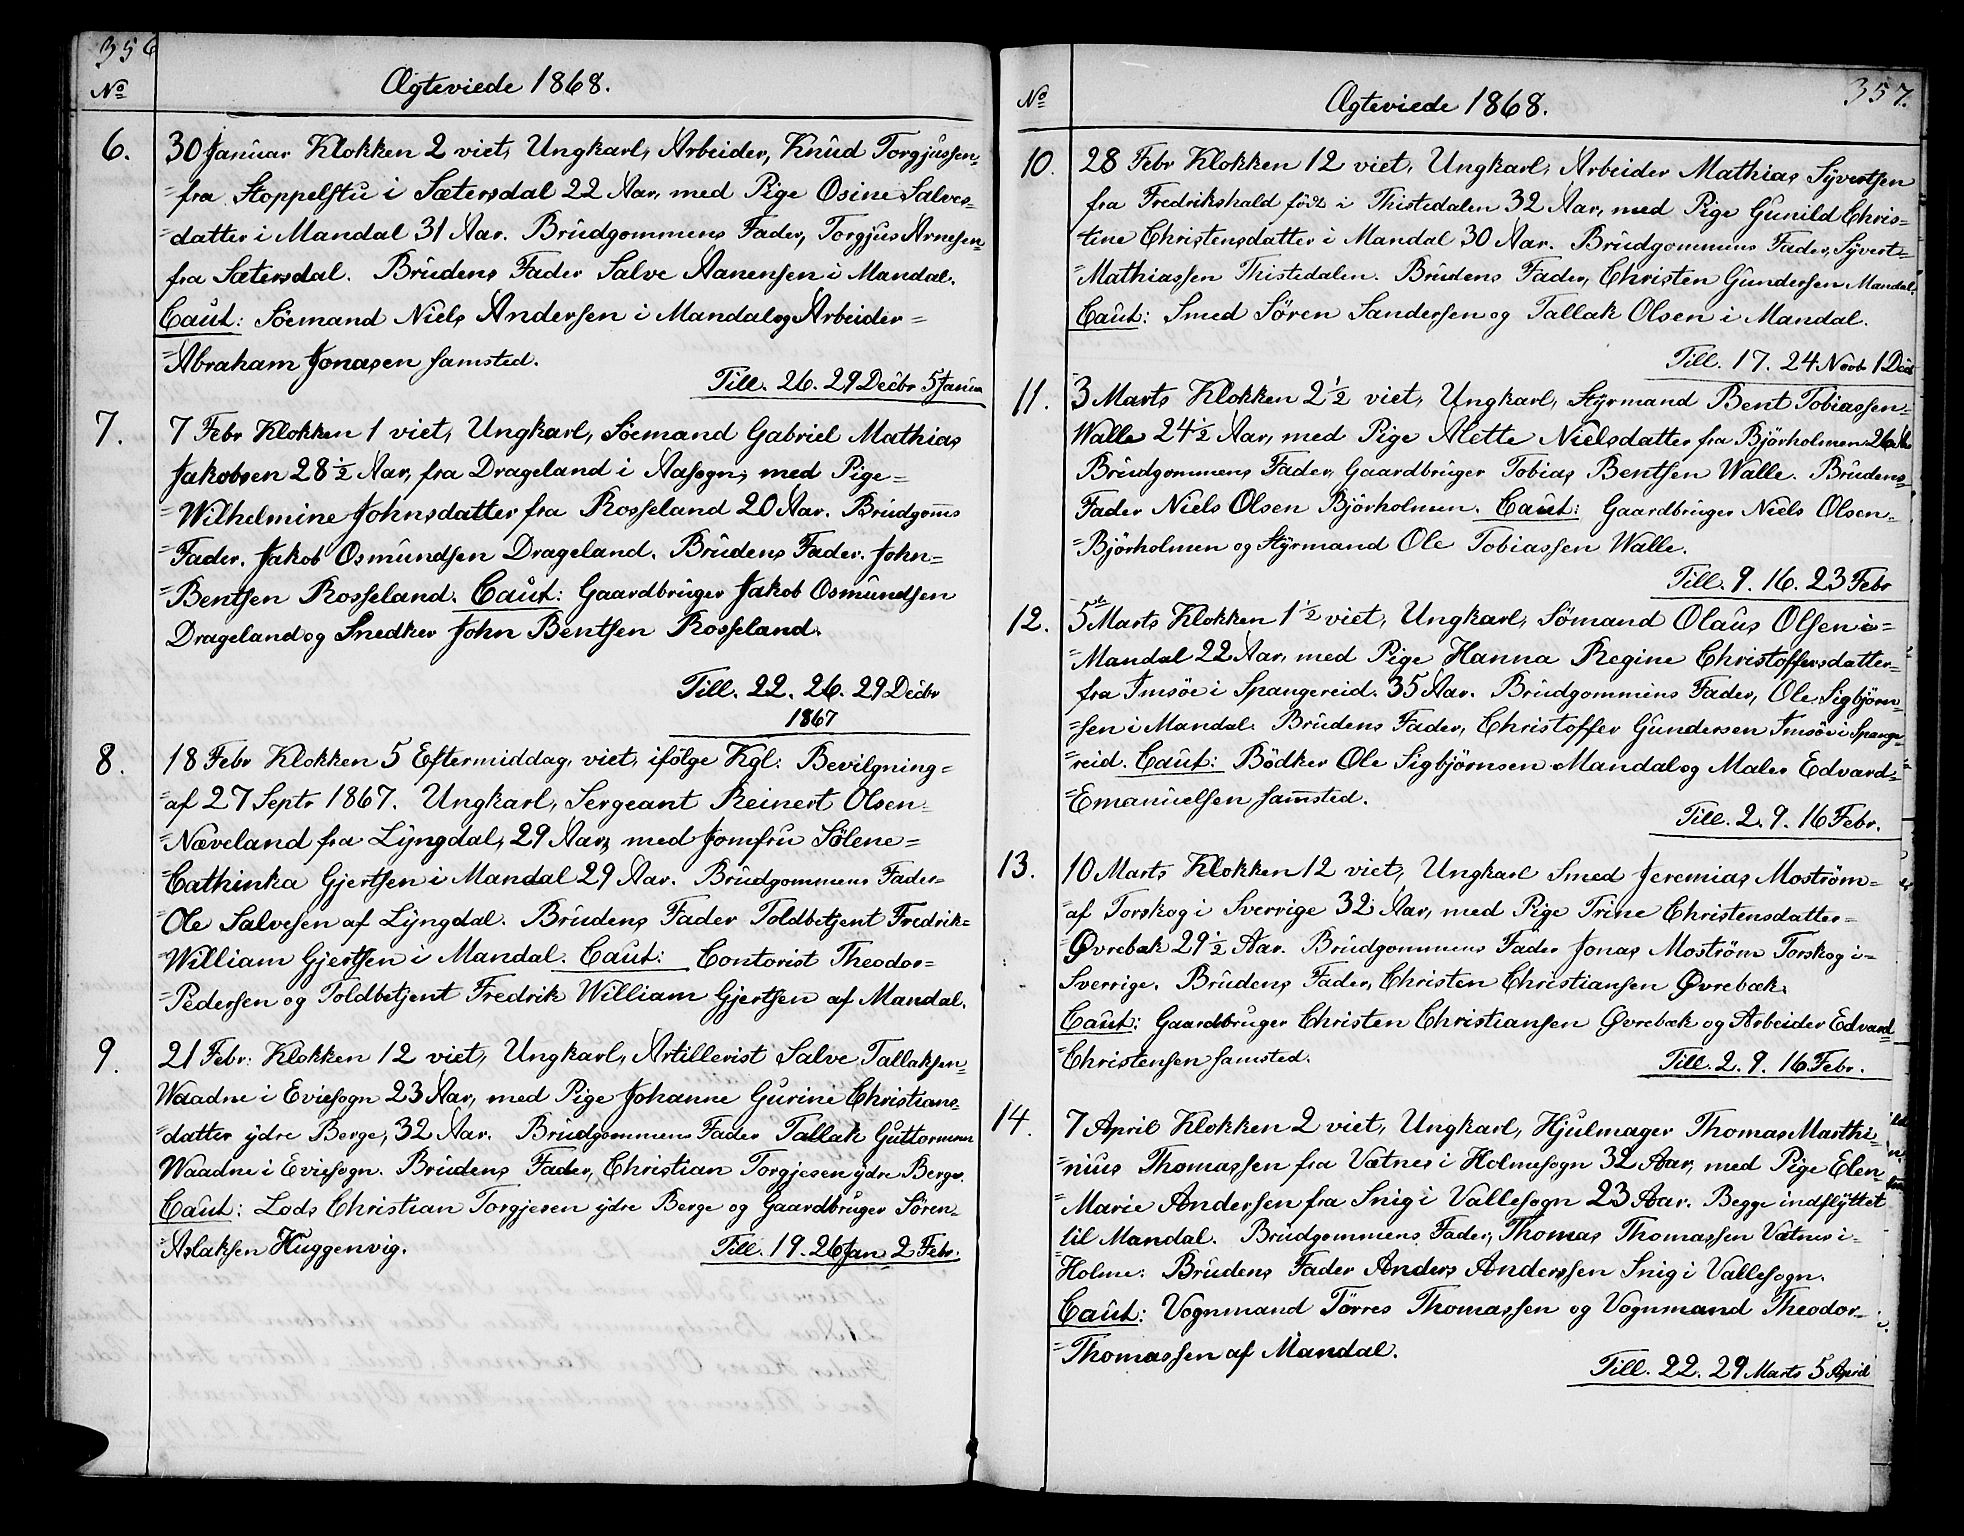 356
No
Ægteviede 1868.
6.
30 Januar Klokken 2 viet, Ungkarl, Arbeider, Knud Torgjussen-
=fra Stoppelstu i Sætersdal 22 Aar, med Pige Osine Salves=
=datter i Mandal 31 Aar. Brudgommens Fader, Torgjus Arnesen
fra Sætersdal. Brudens Fader Salve Aanensen i Mandal.
Caut: Söemand Niels Andersen i Mandal og Arbeider=
=Abraham Jonasen samsted.
Till. 26. 29 Decbr 5 Janua
7.
7 Febr Klokken 1 viet, Ungkarl, Söemand Gabriel Mathias
Jakobsen 28½ Aar, fra Drageland i Aasogn, med Pige=
=Wilhelmine Johnsdatter fra Rosseland 20 Aar. Brudgoms
=Fader. Jakob Osmundsen Drageland. Brudens Fader. John=
=Bentsen Rosseland. Caut: Gaardbruger Jakob Osmundsen
Drageland og Snedker John Bentsen Rosseland.
Till. 22. 26. 29 Decbr
1867
8.
18 Febr Klokken 5 Eftermiddag, viet, ifölge Kgl: Bevilgning=
=af 27 Septr 1867. Ungkarl, Sergeant Reinert Olsen=
=Næveland fra Lyngdal, 29 Aar, med Jomfru Sölene=
=Cathinka Gjertsen i Mandal 29 Aar. Brudgommens Fader=
Ole Salvesen af Lyngdal. Brudens Fader Toldbetjent Fredrik=
=William Gjertsen i Mandal. Caut: Contorist Theodor=
=Pedersen og Toldbetjent Fredrik William Gjertsen af Mandal.
9.
21 Febr: Klokken 12 viet, Ungkarl, Artillerist Salve Tallaksen=
Waadne i Eviesogn 23 Aar, med Pige Johanne Gurine Christians=
=datter ydre Berge, 32 Aar. Brudgommens Fader Tallak Guttormsen
Waadne i Eviesogn. Brudens Fader, Christian Torgjesen ydre Berge.
Caut: Lods Christian Torgjesen ydre Berge og Gaardbruger Sören=
=Aslaksen Huggenvig.
Till. 19. 26 Jan 2 Febr.
357.
No
Ægteviede 1868.
10.
28 Febr Klokken 12 viet, Ungkarl, Arbeider Mathias Syvertsen
fra Fredrikshald födt i Thistedalen 32 Aar, med Pige Gunild Chris=
=tine Christensdatter i Mandal 30 Aar. Brudgommens Fader, Syvert=
=Mathiassen Thistedalen. Brudens Fader, Christen Gundersen Mandal.
Caut: Smed Sören Sandersen og Tallak Olsen i Mandal.
Till. 17. 24 Novb 1 Decb
11.
3 Marts Klokken 2½ viet, Ungkarl, Styrmand Bent Tobiassen=
Walle 24½ Aar, med Pige Alette Nielsdatter fra Björholmen 26 Aar
Brudgommens Fader, Gaardbruger Tobias Bentsen Walle. Brudens=
Fader Niels Olsen Björholmen. Caut: Gaardbruger Niels Olsen=
=Björholmen og Styrmand Ole Tobiassen Walle.
Till. 9. 16. 23 Febr
12.
5 Marts Klokken 1½ viet, Ungkarl, Sömand Olaus Olsen i=
=Mandal 22 Aar, med Pige Hanna Regine Christoffersdatter=
=fra Imsöe i Spangereid. 35 Aar. Brudgommens Fader, Ole Sigbjörn=
=sen i Mandal. Brudens Fader, Christoffer Gundersen Imsöe i Spange=
=reid. Caut: Bödker Ole Sigbjörnsen Mandal og Maler Edvard=
=Emanuelsen samsted.
Till. 2. 9. 16 Febr.
13.
10 Marts Klokken 12 viet, Ungkarl Smed Jeremias Moström=
=af Torskog i Sverrige 32 Aar, med Pige Trine Christensdatter=
=Øvrebæk 29½ Aar. Brudgommens Fader Jonas Moström Torskog i=
Sverrige. Brudens Fader, Christen Christiansen Øvrebæk.
Caut: Gaardbruger Christen Christiansen Øvrebæk og Arbeider Edvard
=Christensen samsted.
Till. 2. 9. 16 Febr.
14.
7 April Klokken 2 viet, Ungkarl, Hjulmager Thomas Marthi=
=nius Thomassen fra Vætnes i Holmesogn 32 Aar, med Pige Elen=
=Marie Andersen fra Snig i Vallesogn 23 Aar. Begge indflyttet
til Mandal. Brudgommens Fader, Thomas Thomassen Vætnes i=
=Holme: Brudens Fader Anders Anderssen Snig i Vallesogn.
Caut: Vognmand Törres Thomassen og Vognmand Theodor=
=Thomassen af Mandal.
Till. 22. 29 Marts 5 April